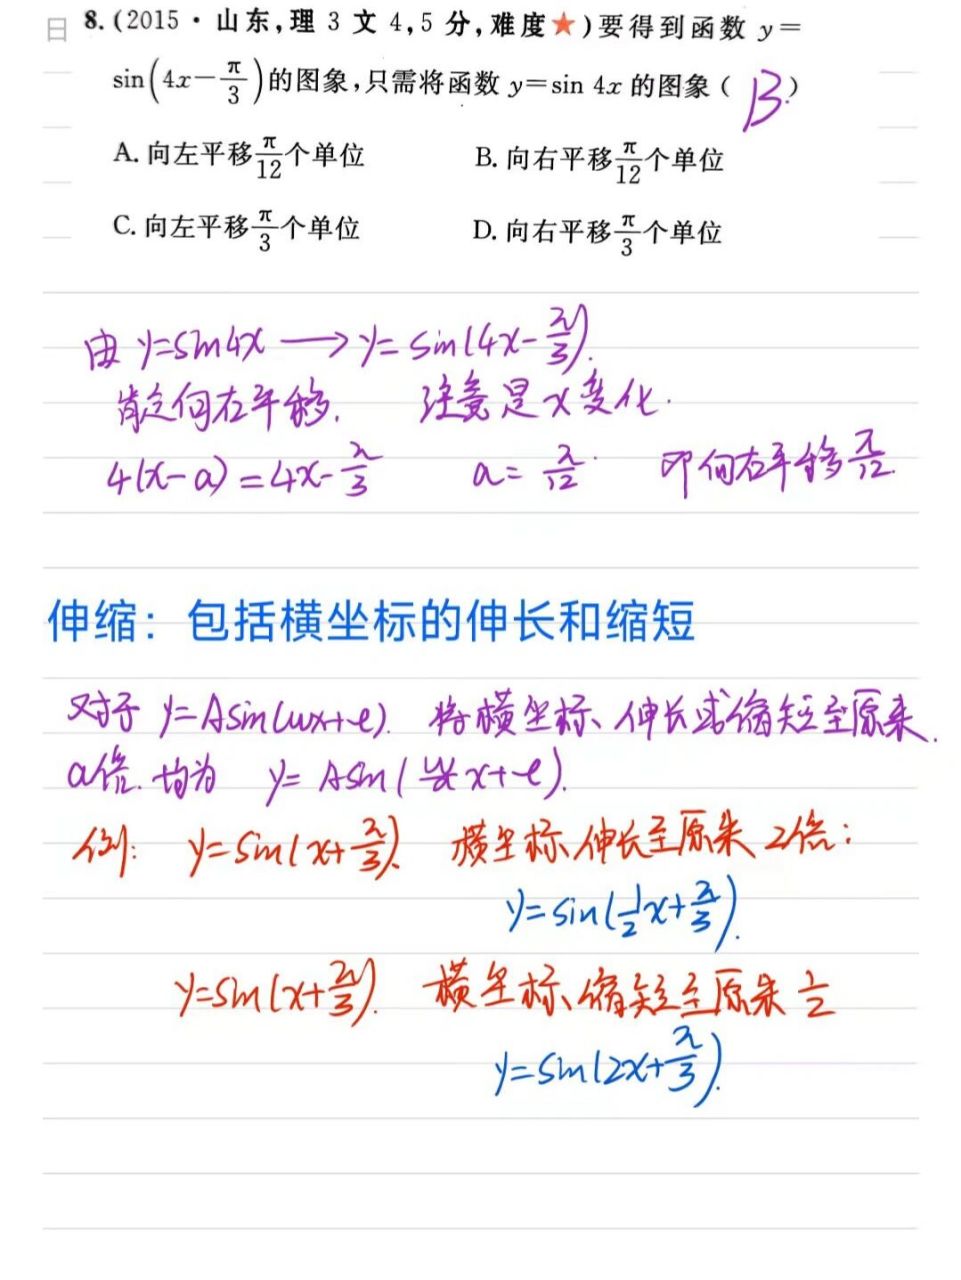 8.(2015·山东,理3文4,5分,难度★)要得到函数 y=
sin(4x-π/3)的图象,只需将函数 y=sin 4x 的图象( B )
A. 向左平移π/12个单位 B. 向右平移π/12个单位
C. 向左平移π/3个单位 D. 向右平移π/3个单位
由 y=sin4x → y=sin(4x-π/3).
肯定向右平移. 注意是x变化.
4(x-a)=4x-π/3 a=π/12. 即向右平移π/12.
伸缩：包括横坐标的伸长和缩短
对于 y=Asin(ωx+φ). 将横坐标、伸长或缩短至原来.
a倍. 均为 y=Asin(ω/a x+φ).
例: y=sin(x+π/3). 横坐标、伸长至原来 2倍:
y=sin(1/2x+π/3).
y=sin(x+π/3). 横坐标、缩短至原来 1/2
y=sin(2x+π/3).